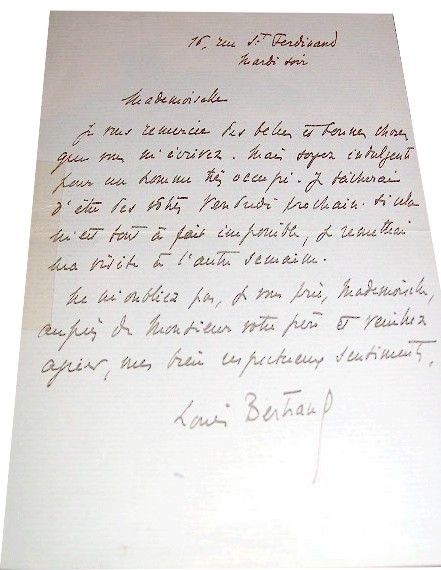 16, rue St Ferdinand
Mardi soir
Mademoiselle
Je vous remercie des belles et bonnes choses
que vous m'écrivez. Mais soyez indulgente
pour un homme très occupé. Je tâcherai
d'être des vôtres Vendredi prochain. Si cela
m'est tout à fait impossible, je remettrai
ma visite à l'autre semaine.
Ne m'oubliez pas, je vous prie, Mademoiselle,
auprès de Monsieur votre père et veuillez
agréer, mes bien respectueux sentiments.
Louis Bertrand